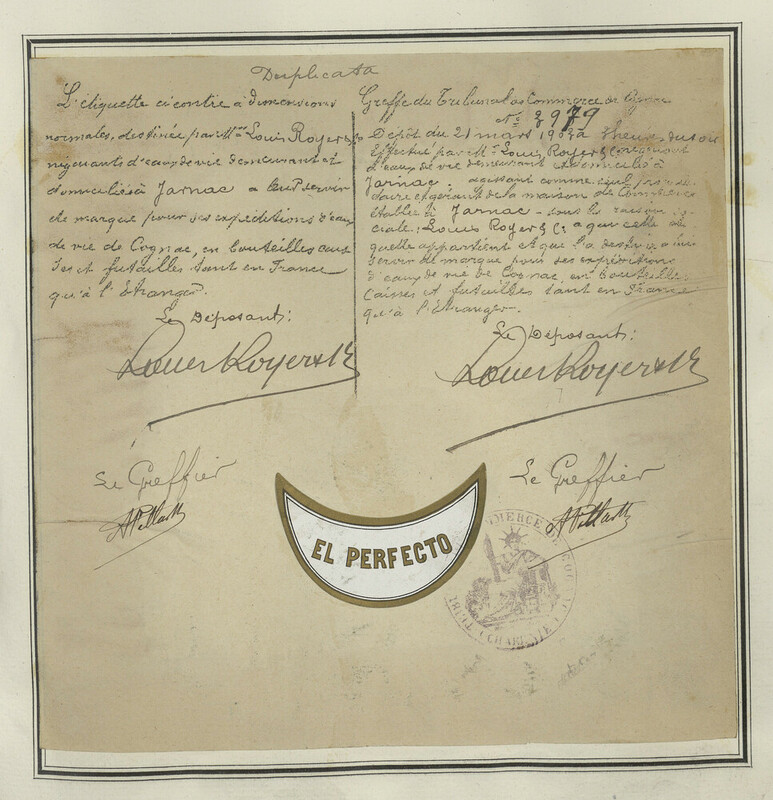 Duplicata
L'étiquette ci contre à dimensions
normales, destinée par Mrs Louis Royer & Co
négociants d'eaux de vie demeurant et
domiciliés à Jarnac a leur servir
de marque pour ses expéditions d'eaux
de vie de Cognac, en bouteilles caisses
et futailles tant en France
qu'à l'Etranger.
Le Déposant:
Louis Royer & Co
Le Greffier
Greffe du Tribunal de Commerce de Cognac
No 3979
Dépôt du 21 mars à heure du soir
Effectué par Mrs Louis Royer & Co négociant
d'eaux de vie demeurant et domiciliés à
Jarnac, agissant comme seul propriétaire
et gérant de la maison de Commerce
établie à Jarnac - sous la raison sociale:
Louis Royer & Co a qui cette étiquette
appartient et qui l'a destinée à lui
servir de marque pour ses expéditions
d'eaux de vie de Cognac, en bouteilles
caisses et futailles tant en France
qu'à l'Etranger.
Le Déposant:
Louis Royer & Co
Le Greffier
EL PERFECTO
TRIBUNAL DE COMMERCE DE COGNAC
(CHARENTE)